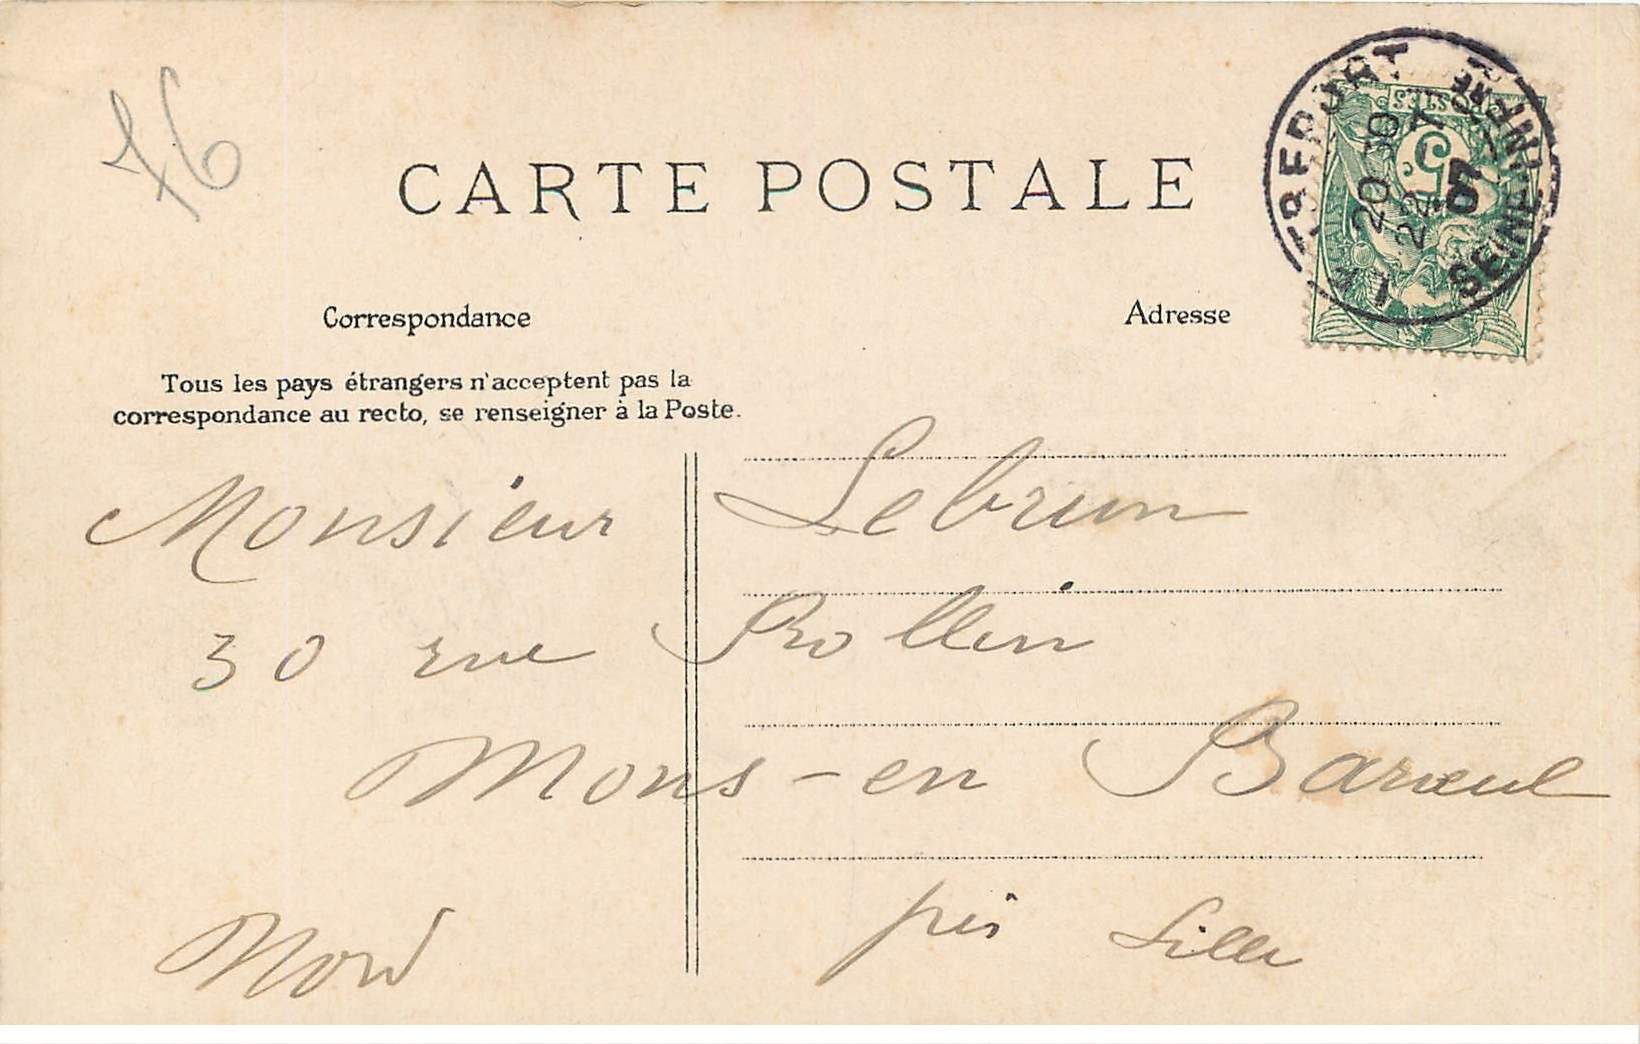 76
CARTE POSTALE
Correspondance
Adresse
Tous les pays étrangers n'acceptent pas la
correspondance au recto, se renseigner à la Poste.
POSTES
5
20 30
22 7
07
SEINE INFRE
Monsieur Lebrun
30 rue Rollin
Mons-en Baroeul
Nord près Lille